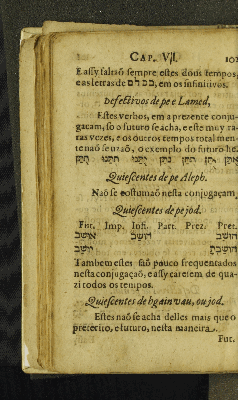 CAP. VII. 10
E assy saltaõ sempre estes dous tempos,
e as letras de בכלם, em os infinitivos.
Defectivos de pe e Lamed.
Estes verbos, em a prezente conju-
gaçam, so o futuro se acha, e este muy ra-
ras vezes, e os outros tempos total men-
te naõ se uzaõ, o exemplo do futuro he.
Quiescentes de pe Aleph.
Naõ se costumaõ nesta conjugaçam
Quiescentes de pe jod.
Fut. Imp. Infi. Part. Prez. Pret.
Tambem estes saõ pouco frequentados
nesta conjugaçaõ, e assy careiem de qua-
zi todos os tempos.
Quiescentes de hgain vau, ou jod.
Estes naõ se acha delles mais que o
preterito, e luturo, nesta maneira
Fut.